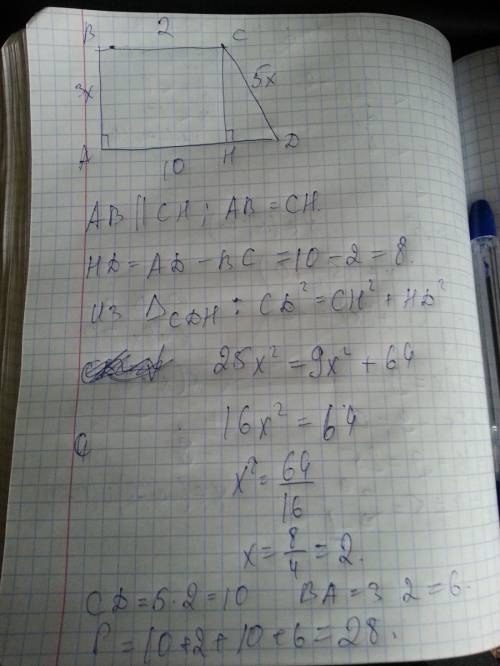 2
B C
3x 5x
A H D
10
AB || CH; AB = CH.
HD = AD - BC = 10 - 2 = 8.
Из △CDH: CD² = CH² + HD²
25x² = 9x² + 64
16x² = 64
x² = 64/16
x = 8/4 = 2.
CD = 5·2 = 10 BA = 3 2 = 6.
P = 10 + 2 + 10 + 6 = 28.